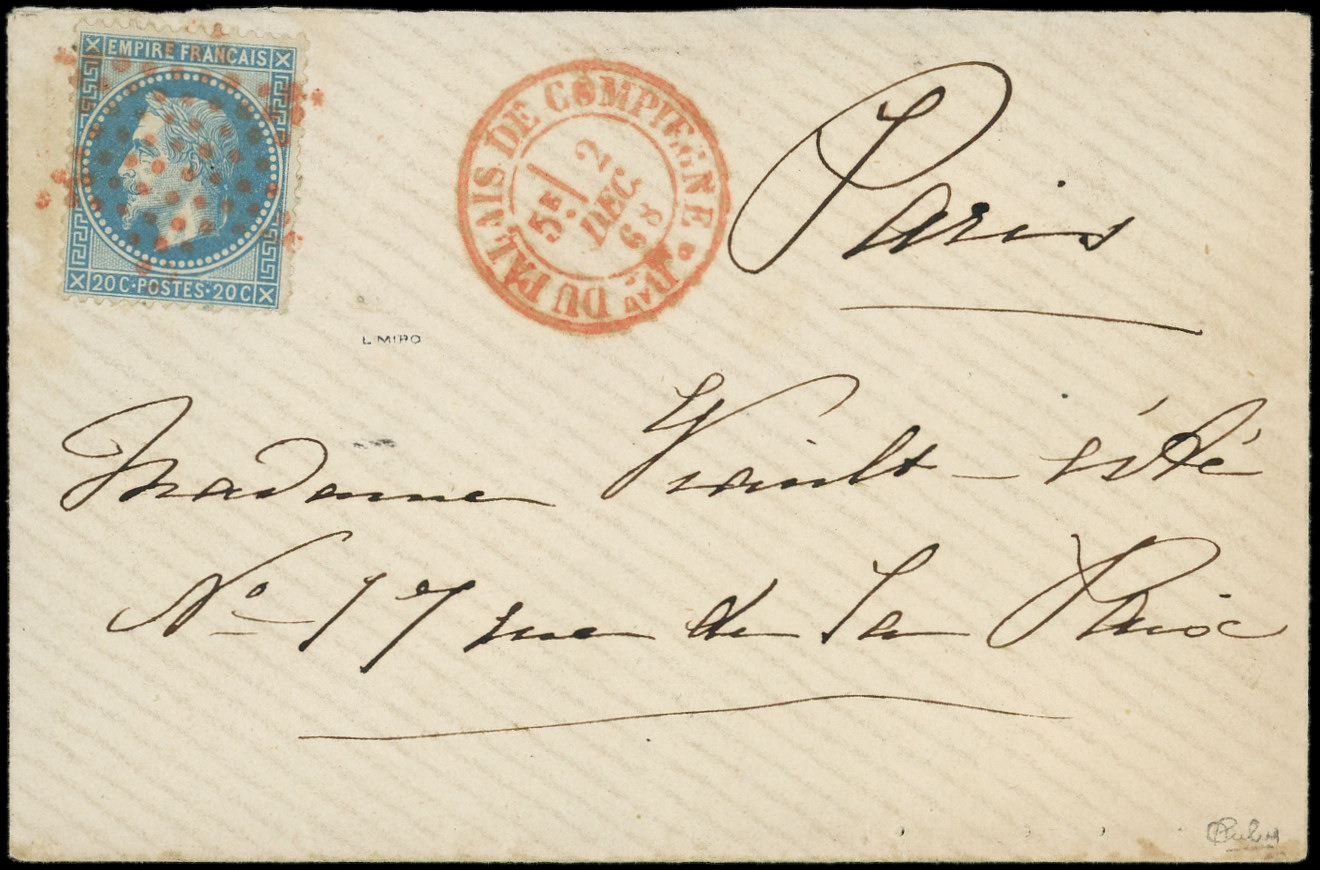 EMPIRE FRANCAIS
20C·POSTES·20C
Bau DU PALAIS DE COMPIEGNE
5E
2
DEC.
68
Paris
L MIRO
Madame
No 17 rue de la Paix